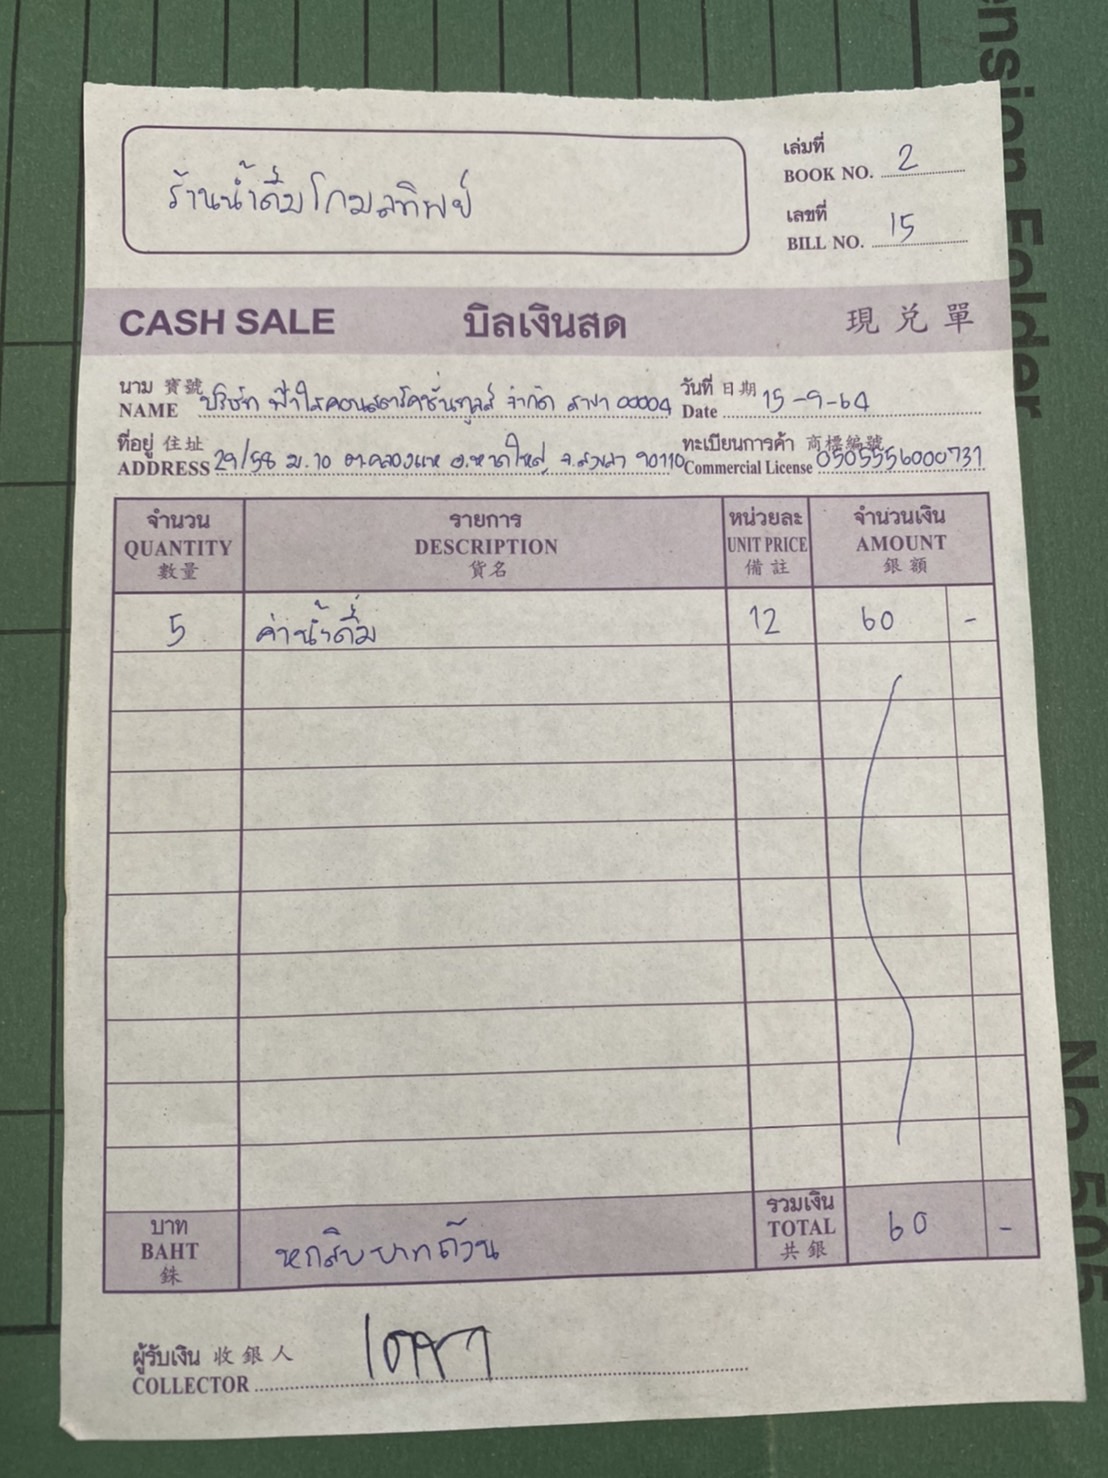 ร้านน้ำดื่มโกมลทิพย์
เล่มที่
BOOK NO. 2
เลขที่
BILL NO. 15
CASH SALE บิลเงินสด 現兌單
นาม 寶號
NAME บริษัท ฟ้าใสคอนสตรัคชั่นทูลส์ จำกัด สาขา 00004
วันที่ 日期
Date 15-9-64
ที่อยู่ 住址
ADDRESS 29/58 ม.10 ต.คลองแห อ.หาดใหญ่ จ.สงขลา 90110
ทะเบียนการค้า 商標編號
Commercial License 0505556000731
จำนวน รายการ หน่วยละ จำนวนเงิน
QUANTITY DESCRIPTION UNIT PRICE AMOUNT
數量 貨名 備註 銀額
5 ค่าน้ำดื่ม 12 60 -
บาท
BAHT
銖
หกสิบบาทถ้วน
รวมเงิน
TOTAL
共銀
60 -
ผู้รับเงิน 收銀人
COLLECTOR
ension Folder
No 505